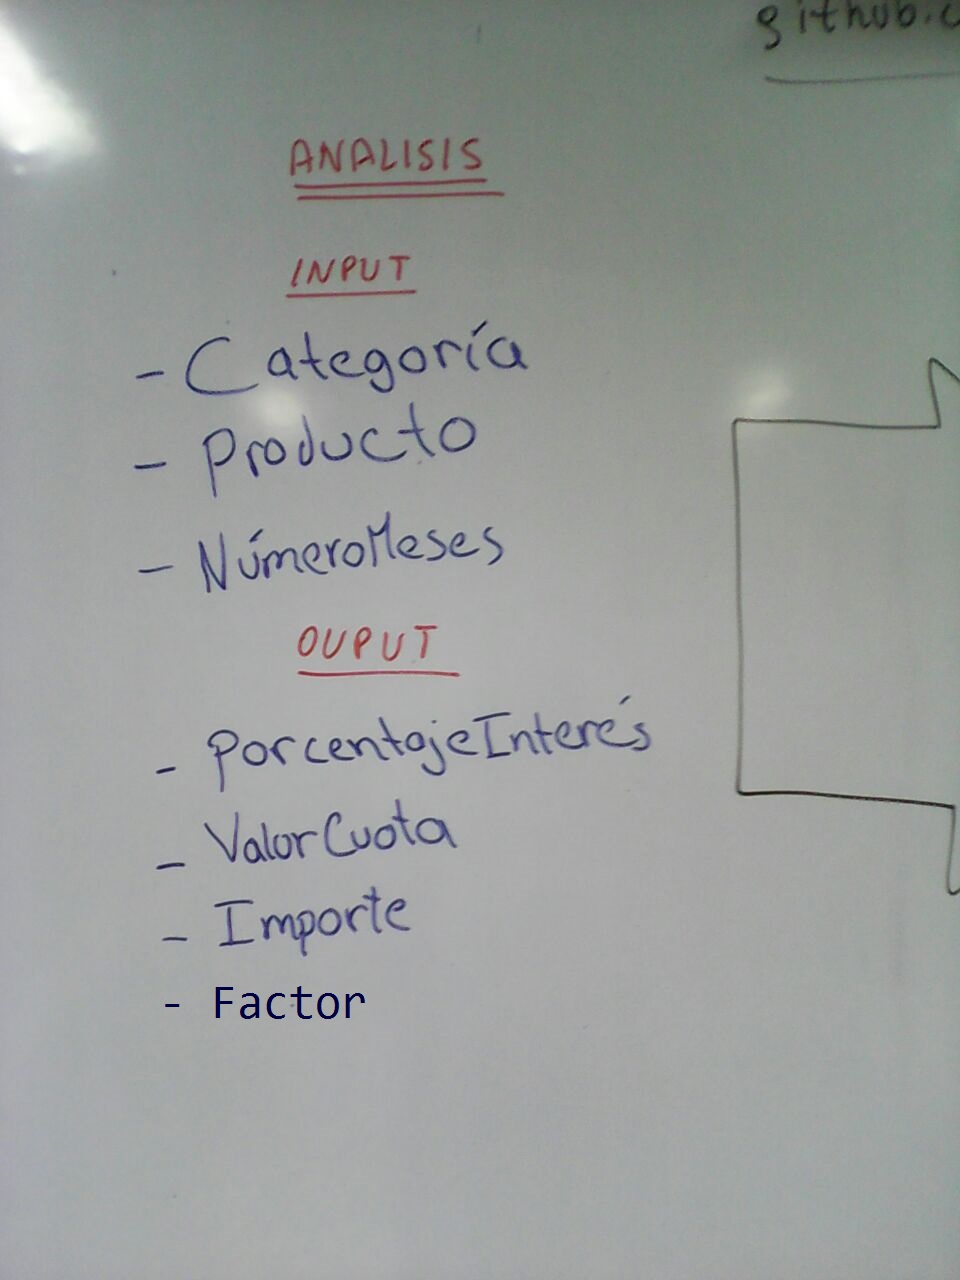 github.c
ANALISIS
INPUT
- Categoría
- Producto
- NúmeroMeses
OUPUT
- PorcentajeInterés
- ValorCuota
- Importe
- Factor